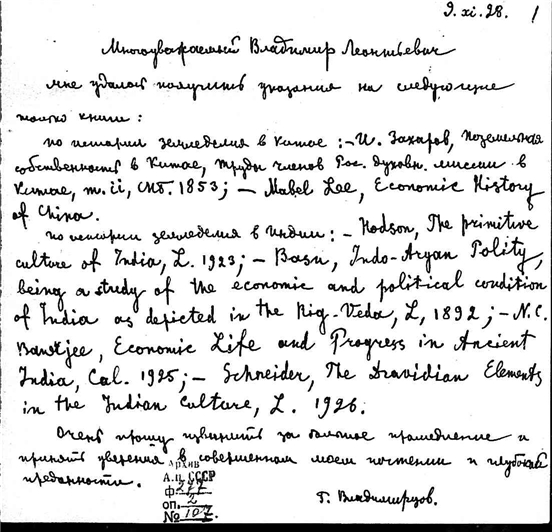 9. xi. 28. 1
Многоуважаемый Владимир Леонтьевич
мне удалось получить указания на следующие
только книги:
по истории земледелия в Китае: — И. Захаров, Поземельная
собственность в Китае, Труды членов Рос. духовн. миссии в
Китае, т. ii, СПб. 1853; — Mabel Lee, Economic History
of China.
по истории земледелия в Индии: — Hodson, The primitive
culture of India, L. 1923; — Basu, Indo-Aryan Polity,
being a study of the economic and political condition
of India as depicted in the Rig-Veda, L, 1892; — N.C.
Banerjee, Economic Life and Progress in Ancient
India, Cal. 1925; — Schneider, The Dravidian Elements
in the Indian Culture, L. 1926.
Очень прошу извинить за большое промедление и
принять уверения в совершенном моем почтении и глубокой
преданности.
Б. Владимирцов.
Архив
А.Н. СССР
ф. 277
оп. 2
№ 107.